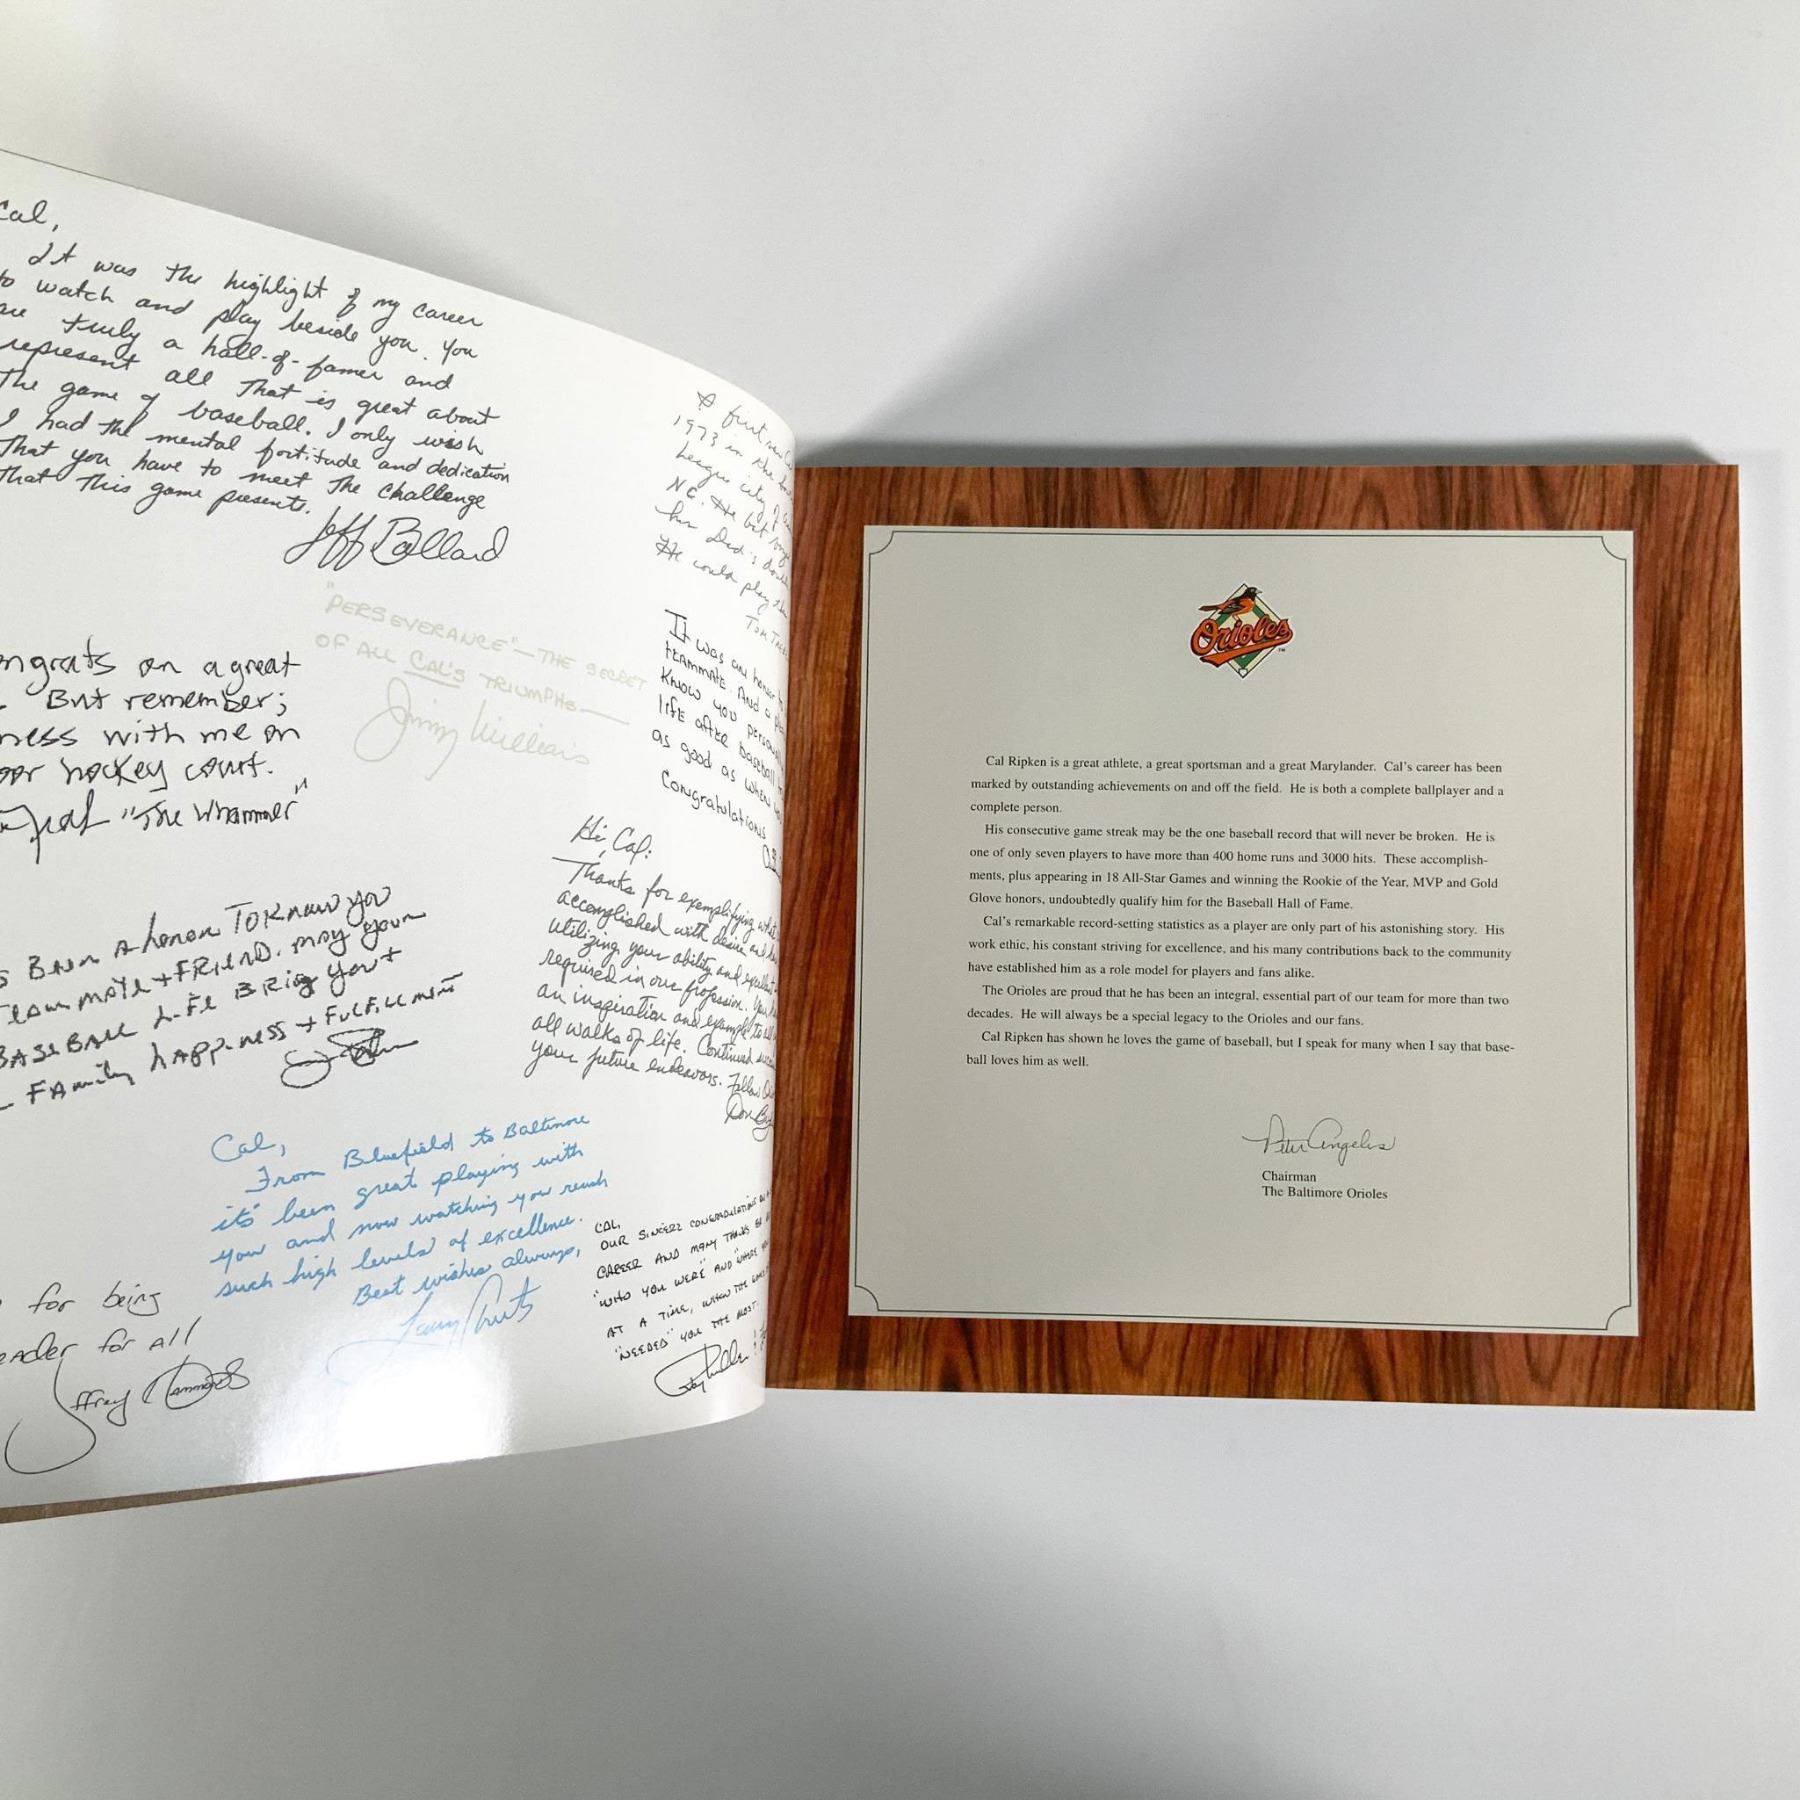 Cal,
It was the highlight of my career
to watch and play beside you. You
are truly a hall-of-famer and
represent all that is great about
The game of baseball. I only wish
I had the mental fortitude and dedication
That you have to meet the challenge
That this game presents.
Jeff Ballard
"PERSEVERANCE" — THE SECRET
OF ALL CAL'S TRIUMPHS —
Jimy Williams
ongrats on a great
But remember;
ness with me on
oor hockey court.
"The Whammer"
s Been A honor To Know you
Teammate + FRIEND. may your
BASEBALL Life BRing you +
FAmily hAPPiness + FulFillment
Cal,
From Bluefield to Baltimore
it's been great playing with
you and now watching you reach
such high levels of excellence.
Best wishes always,
Larry Sheets
for being
eader for all
Jeffrey Hammonds
first
1973 in the
League city
NC. He
his Dad's
He could play
Tom
It was an honor
teammate. And a
Know you
life after baseball
as good as when
Congratulations
Hi, Cal:
Thanks for exemplifying what
accomplished with desire and
utilizing your ability and
required in our profession. You
an inspiration and example to all
all walks of life. Continued
your future endeavors.
Don
CAL,
OUR SINCERE CONGRATULATIONS
CAREER AND MANY THANKS
"WHO YOU WERE" AND "WHERE
AT A TIME, WHEN THE
"NEEDED" YOU THE MOST.
Orioles
TM
Cal Ripken is a great athlete, a great sportsman and a great Marylander. Cal's career has been
marked by outstanding achievements on and off the field. He is both a complete ballplayer and a
complete person.
His consecutive game streak may be the one baseball record that will never be broken. He is
one of only seven players to have more than 400 home runs and 3000 hits. These accomplish-
ments, plus appearing in 18 All-Star Games and winning the Rookie of the Year, MVP and Gold
Glove honors, undoubtedly qualify him for the Baseball Hall of Fame.
Cal's remarkable record-setting statistics as a player are only part of his astonishing story. His
work ethic, his constant striving for excellence, and his many contributions back to the community
have established him as a role model for players and fans alike.
The Orioles are proud that he has been an integral, essential part of our team for more than two
decades. He will always be a special legacy to the Orioles and our fans.
Cal Ripken has shown he loves the game of baseball, but I speak for many when I say that base-
ball loves him as well.
Peter Angelos
Chairman
The Baltimore Orioles